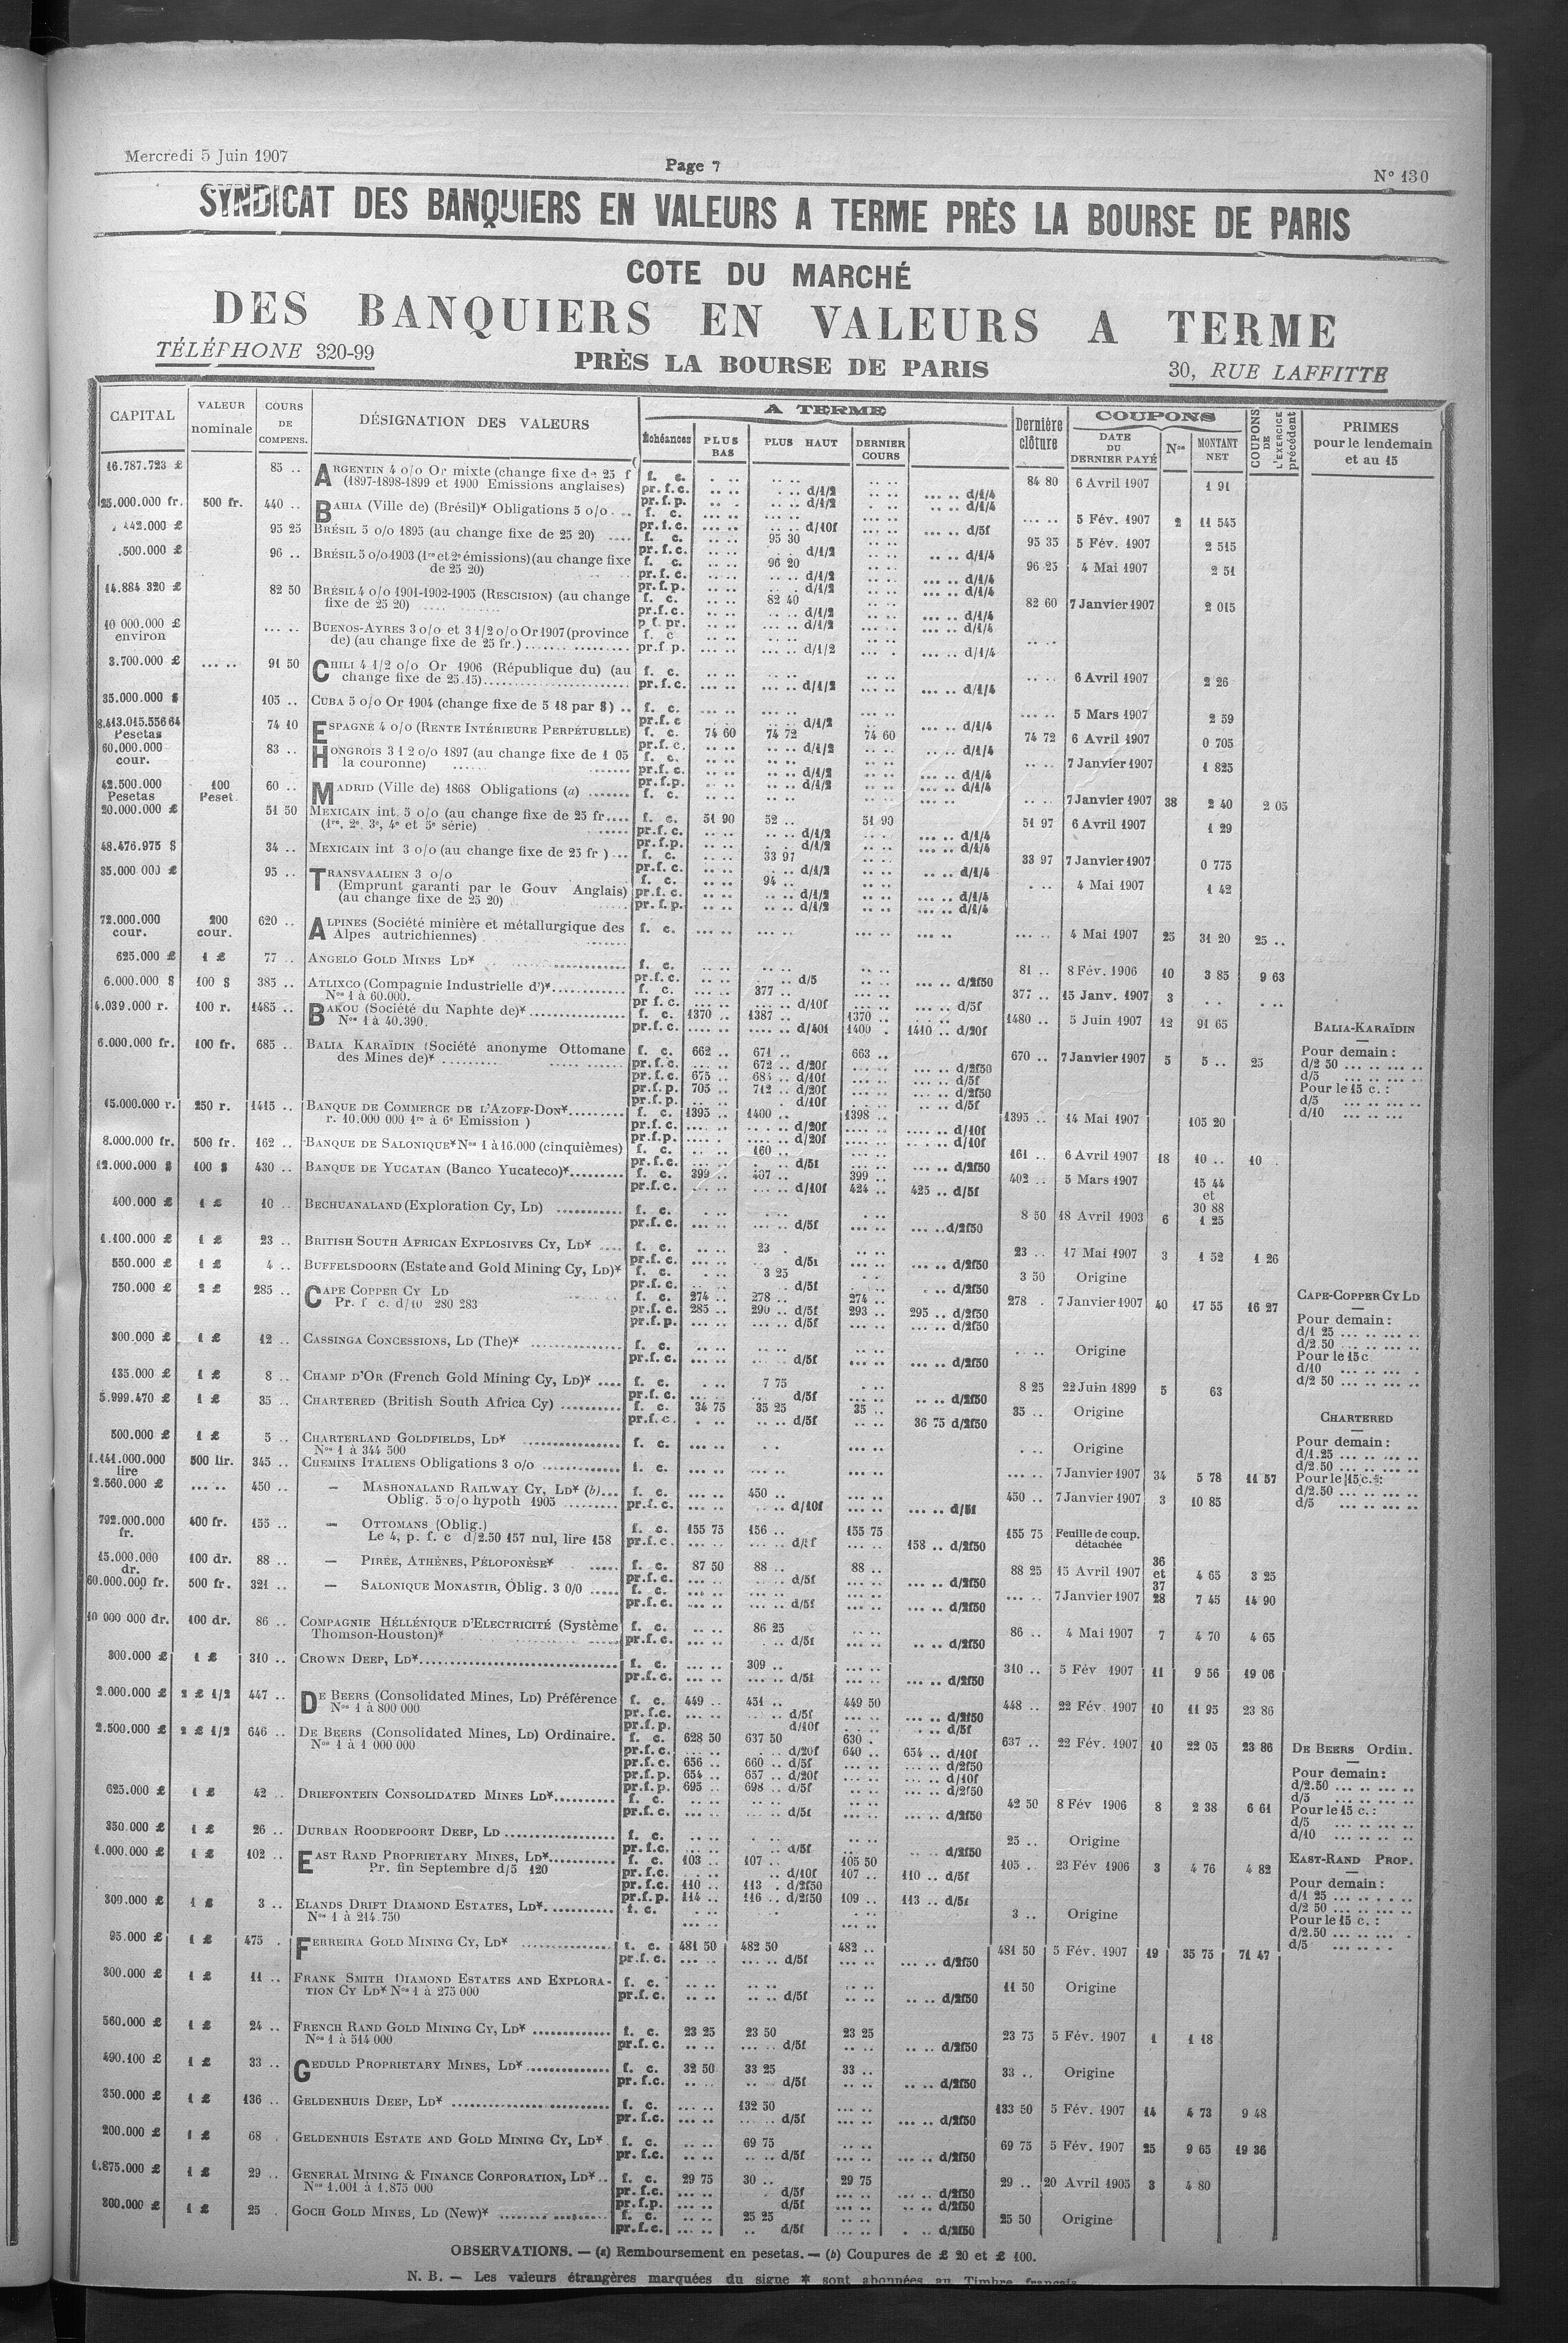 Mercredi 5 Juin 1907
Page 7
N° 130
SYNDICAT DES BANQUIERS EN VALEURS A TERME PRÈS LA BOURSE DE PARIS
COTE DU MARCHÉ
DES BANQUIERS EN VALEURS A TERME
TÉLÉPHONE 320-99
PRÈS LA BOURSE DE PARIS
30, RUE LAFFITTE
CAPITAL
VALEUR nominale
COURS DE COMPENS.
DÉSIGNATION DES VALEURS
A TERME
Échéances
PLUS BAS
PLUS HAUT
DERNIER COURS
Dernière clôture
COUPONS
DATE DU DERNIER PAYÉ
Nos
MONTANT NET
COUPONS DE L'EXERCICE précédent
PRIMES pour le lendemain et au 15
16.787.723 £ 85 .. ARGENTIN 4 o/o Or mixte (change fixe de 25 f f. c. 84 80 6 Avril 1907 1 91
(1897-1898-1899 et 1900 Emissions anglaises) pr.f.c. d/1/2 d/1/4
25.000.000 fr. 500 fr. 440 .. BAHIA (Ville de) (Brésil)* Obligations 5 o/o f. c. 5 Fév. 1907 2 11 545
95 25 BRÉSIL 5 o/o 1895 (au change fixe de 25 20) f. c. 95 30 95 35 5 Fév. 1907 2 515
96 .. BRÉSIL 5 o/o 1903 (1re et 2e émissions) (au change fixe f. c. 96 20 96 25 4 Mai 1907 2 51
de 25 20)
14.884 320 £ 82 50 BRÉSIL 4 o/o 1901-1902-1903 (RESCISION) (au change f. c. 82 40 82 60 7 Janvier 1907 2 015
fixe de 25 20)
10 000.000 £ environ BUENOS-AYRES 3 o/o et 3 1/2 o/o Or 1907 (province f. c
de) (au change fixe de 25 fr.) pr.f.p. d/1/2 d/1/4
3.700.000 £ 91 50 CHILI 4 1/2 o/o Or 1906 (République du) (au f. c. 6 Avril 1907 2 26
change fixe de 25.15) pr.f.c. d/1/2 d/1/4
35.000.000 $ 105 .. CUBA 5 o/o Or 1904 (change fixe de 5 18 par $) f. c. 5 Mars 1907 2 59
8.413.015.556 64 Pesetas 74 10 ESPAGNE 4 o/o (RENTE INTÉRIEURE PERPÉTUELLE) f. c. 74 60 74 72 74 60 74 72 6 Avril 1907 0 705
60.000.000 cour. 83 .. HONGROIS 3 1 2 o/o 1897 (au change fixe de 1 05 f. c. 7 Janvier 1907 1 825
la couronne)
42.500.000 Pesetas 100 Peset. 60 .. MADRID (Ville de) 1868 Obligations (a) f. c. 7 Janvier 1907 38 2 40 2 05
20.000.000 £ 51 50 MEXICAIN int. 5 o/o (au change fixe de 25 fr. f. c. 51 90 52 .. 51 90 51 97 6 Avril 1907 1 29
(1re, 2e, 3e, 4e et 5e série)
48.476.975 $ 34 .. MEXICAIN int 3 o/o (au change fixe de 25 fr ) f. c. 33 97 33 97 7 Janvier 1907 0 775
35.000 000 £ 95 .. TRANSVAALIEN 3 o/o f. c. 94 .. 4 Mai 1907 1 42
(Emprunt garanti par le Gouv Anglais) pr.f.c. d/1/2 d/1/4
(au change fixe de 25 20) pr.f.p. d/1/2 d/1/4
72.000.000 cour. 200 cour. 620 .. ALPINES (Société minière et métallurgique des f. c. 4 Mai 1907 25 31 20 25 ..
Alpes autrichiennes)
625.000 £ 1 £ 77 .. ANGELO GOLD MINES LD* f. c. 81 .. 8 Fév. 1906 10 3 85 9 63
6.000.000 $ 100 $ 385 .. ATLIXCO (Compagnie Industrielle d')* f. c. 377 .. 377 .. 15 Janv. 1907 3
Nos 1 à 60.000. pr f.c. d/10f d/5f
4.039.000 r. 100 r. 1485 .. BAKOU (Société du Naphte de)* f. c. 1370 .. 1387 .. 1370 .. 1480 .. 5 Juin 1907 12 91 65
Nos 1 à 40.390. pr.f.c. 1400 . 1410 .. d/20f
6.000.000 fr. 100 fr. 685 .. BALIA KARAÏDIN (Société anonyme Ottomane f. c. 662 .. 671 .. 663 .. 670 .. 7 Janvier 1907 5 5 .. 25
des Mines de)* pr.f.c. 672 .. d/20f d/2f50
pr.f.c. 675 .. d/10f d/5f
pr.f.p. 705 .. 712 .. d/20f d/2f50
pr.f.p. d/10f d/5f
BALIA-KARAÏDIN
Pour demain :
d/2 50
d/5
Pour le 15 c. :
d/5
d/10
15.000.000 r. 250 r. 1415 .. BANQUE DE COMMERCE DE L'AZOFF-DON* f. c. 1395 .. 1400 .. 1398 .. 1395 .. 14 Mai 1907 105 20
r. 10.000 000 1re à 6e Emission ) pr.f.c. d/20f d/10f
8.000.000 fr. 500 fr. 162 .. BANQUE DE SALONIQUE* Nos 1 à 16.000 (cinquièmes) f. c. 160 .. 161 .. 6 Avril 1907 18 10 .. 10
12.000.000 $ 100 $ 430 .. BANQUE DE YUCATAN (Banco Yucateco)* f. c. 399 .. 407 .. 399 .. 402 .. 5 Mars 1907 15 44 et 30 88
pr.f.c. d/10f 424 .. 425 .. d/5f
400.000 £ 1 £ 10 .. BECHUANALAND (Exploration Cy, LD) f. c. 8 50 18 Avril 1903 6 1 25
pr.f.c. d/5f d/2f50
1.100.000 £ 1 £ 23 .. BRITISH SOUTH AFRICAN EXPLOSIVES CY, LD* f. c. 23 . 23 .. 17 Mai 1907 3 1 52 1 26
550.000 £ 1 £ 4 .. BUFFELSDOORN (Estate and Gold Mining Cy, LD)* f. c. 3 25 3 50 Origine
750.000 £ 2 £ 285 .. CAPE COPPER CY LD f. c. 274 .. 278 .. 274 .. 278 . 7 Janvier 1907 40 17 55 16 27
Pr. f c. d/10 280 283 pr.f.c. 285 .. 290 .. d/5f 293 .. 295 .. d/2f50
pr.f.p. d/5f d/2f50
CAPE-COPPER CY LD
Pour demain :
d/1 25
d/2.50
Pour le 15 c
d/10
d/2 50
300.000 £ 1 £ 12 .. CASSINGA CONCESSIONS, LD (The)* f. c. Origine
pr.f.c. d/5f d/2f50
135.000 £ 1 £ 8 .. CHAMP D'OR (French Gold Mining Cy, LD)* f. c. 7 75 8 25 22 Juin 1899 5 63
5.999.470 £ 1 £ 35 .. CHARTERED (British South Africa Cy) f. c. 34 75 35 25 35 .. 35 .. Origine
pr.f.c. d/5f 36 75 d/2f50
CHARTERED
Pour demain :
d/1.25
d/2.50
Pour le 15 c. :
d/2.50
d/5
500.000 £ 1 £ 5 .. CHARTERLAND GOLDFIELDS, LD* f. c. Origine
Nos 1 à 344 500
1.141.000.000 lire 500 lir. 345 .. CHEMINS ITALIENS Obligations 3 o/o f. c. 7 Janvier 1907 34 5 78 11 57
2.560.000 £ 450 .. — MASHONALAND RAILWAY CY, LD* (b) f. c. 450 .. 450 .. 7 Janvier 1907 3 10 85
Oblig. 5 o/o hypoth 1905 pr.f.c. d/10f d/5f
792.000.000 fr. 400 fr. 155 .. — OTTOMANS (Oblig.) f. c. 155 75 156 .. 155 75 155 75 Feuille de coup. détachée
Le 4, p. f. c d/2.50 157 nul, lire 158 pr.f.c. 158 .. d/2f50
15.000.000 dr. 100 dr. 88 .. — PIRÉE, ATHÈNES, PÉLOPONÈSE* f. c. 87 50 88 .. 88 .. 88 25 15 Avril 1907 36 et 37 4 65 3 25
60.000.000 fr. 500 fr. 321 .. — SALONIQUE MONASTIR, Oblig. 3 0/0 f. c. 7 Janvier 1907 28 7 45 14 90
10 000 000 dr. 100 dr. 86 .. COMPAGNIE HÉLLÉNIQUE D'ELECTRICITÉ (Système f. c. 86 25 86 .. 4 Mai 1907 7 4 70 4 65
Thomson-Houston)* pr.f.c. d/5f d/2f50
300.000 £ 1 £ 310 .. CROWN DEEP, LD* f. c. 309 .. 310 .. 5 Fév 1907 11 9 56 19 06
2.000.000 £ 2 £ 1/2 447 .. DE BEERS (Consolidated Mines, LD) Préférence f. c. 449 .. 451 .. 449 50 448 .. 22 Fév. 1907 10 11 95 23 86
Nos 1 à 800 000 pr.f.c. d/5f d/2f50
2.500.000 £ 2 £ 1/2 646 .. DE BEERS (Consolidated Mines, LD) Ordinaire. f. c. 628 50 637 50 630 . 637 .. 22 Fév. 1907 10 22 05 23 86
Nos 1 à 1 000 000 pr.f.c. d/20f 640 .. 654 .. d/10f
pr.f.c. 656 .. 660 .. d/5f d/2f50
pr.f.p. 654 .. 657 .. d/20f d/10f
pr.f.p. 695 .. 698 .. d/5f d/2f50
DE BEERS Ordin.
Pour demain :
d/2.50
d/5
Pour le 15 c. :
d/5
d/10
625.000 £ 1 £ 42 .. DRIEFONTEIN CONSOLIDATED MINES LD* f. c. 42 50 8 Fév 1906 8 2 38 6 61
350.000 £ 1 £ 26 .. DURBAN ROODEPOORT DEEP, LD f. c. 25 .. Origine
1.000.000 £ 1 £ 102 .. EAST RAND PROPRIETARY MINES, LD* f. c. 103 .. 107 .. 105 50 105 .. 23 Fév 1906 3 4 76 4 82
Pr. fin Septembre d/5 120 pr.f.c. d/10f 107 .. 110 .. d/5f
pr.f.c. 110 .. 113 .. d/2f50
pr.f.p. 114 .. 116 .. d/2f50 109 .. 113 .. d/5f
EAST-RAND PROP.
Pour demain :
d/1 25
d/2 50
Pour le 15 c. :
d/2.50
d/5
300.000 £ 1 £ 3 .. ELANDS DRIFT DIAMOND ESTATES, LD* f. c. 3 .. Origine
Nos 1 à 214.750
95.000 £ 1 £ 475 . FERREIRA GOLD MINING CY, LD* f. c. 481 50 482 50 482 .. 481 50 5 Fév. 1907 19 35 75 71 47
pr.f.c. d/5f d/2f50
300.000 £ 1 £ 11 .. FRANK SMITH DIAMOND ESTATES AND EXPLORA- f. c. 11 50 Origine
TION CY LD* Nos 1 à 275 000 pr.f.c. d/5f d/2f50
560.000 £ 1 £ 24 .. FRENCH RAND GOLD MINING CY, LD* f. c. 23 25 23 50 23 25 23 75 5 Fév. 1907 1 1 18
Nos 1 à 514 000 pr.f.c. d/5f d/2f50
490.100 £ 1 £ 33 .. GEDULD PROPRIETARY MINES, LD* f. c. 32 50 33 25 33 .. 33 .. Origine
pr.f.c. d/5f d/2f50
350.000 £ 1 £ 136 .. GELDENHUIS DEEP, LD* f. c. 132 50 133 50 5 Fév. 1907 14 4 73 9 48
pr.f.c. d/5f d/2f50
200.000 £ 1 £ 68 . GELDENHUIS ESTATE AND GOLD MINING CY, LD* f. c. 69 75 69 75 5 Fév. 1907 25 9 65 19 36
pr.f.c. d/5f d/2f50
1.875.000 £ 1 £ 29 .. GENERAL MINING & FINANCE CORPORATION, LD* f. c. 29 75 30 .. 29 75 29 .. 20 Avril 1905 3 4 80
Nos 1.001 à 1.875 000 pr.f.c. d/5f d/2f50
pr.f.p. d/5f d/2f50
300.000 £ 1 £ 25 . GOCH GOLD MINES, LD (New)* f. c. 25 25 25 50 Origine
pr.f.c. d/5f d/2f50
OBSERVATIONS. — (a) Remboursement en pesetas. — (b) Coupures de £ 20 et £ 100.
N. B. — Les valeurs étrangères marquées du signe * sont abonnées au Timbre français